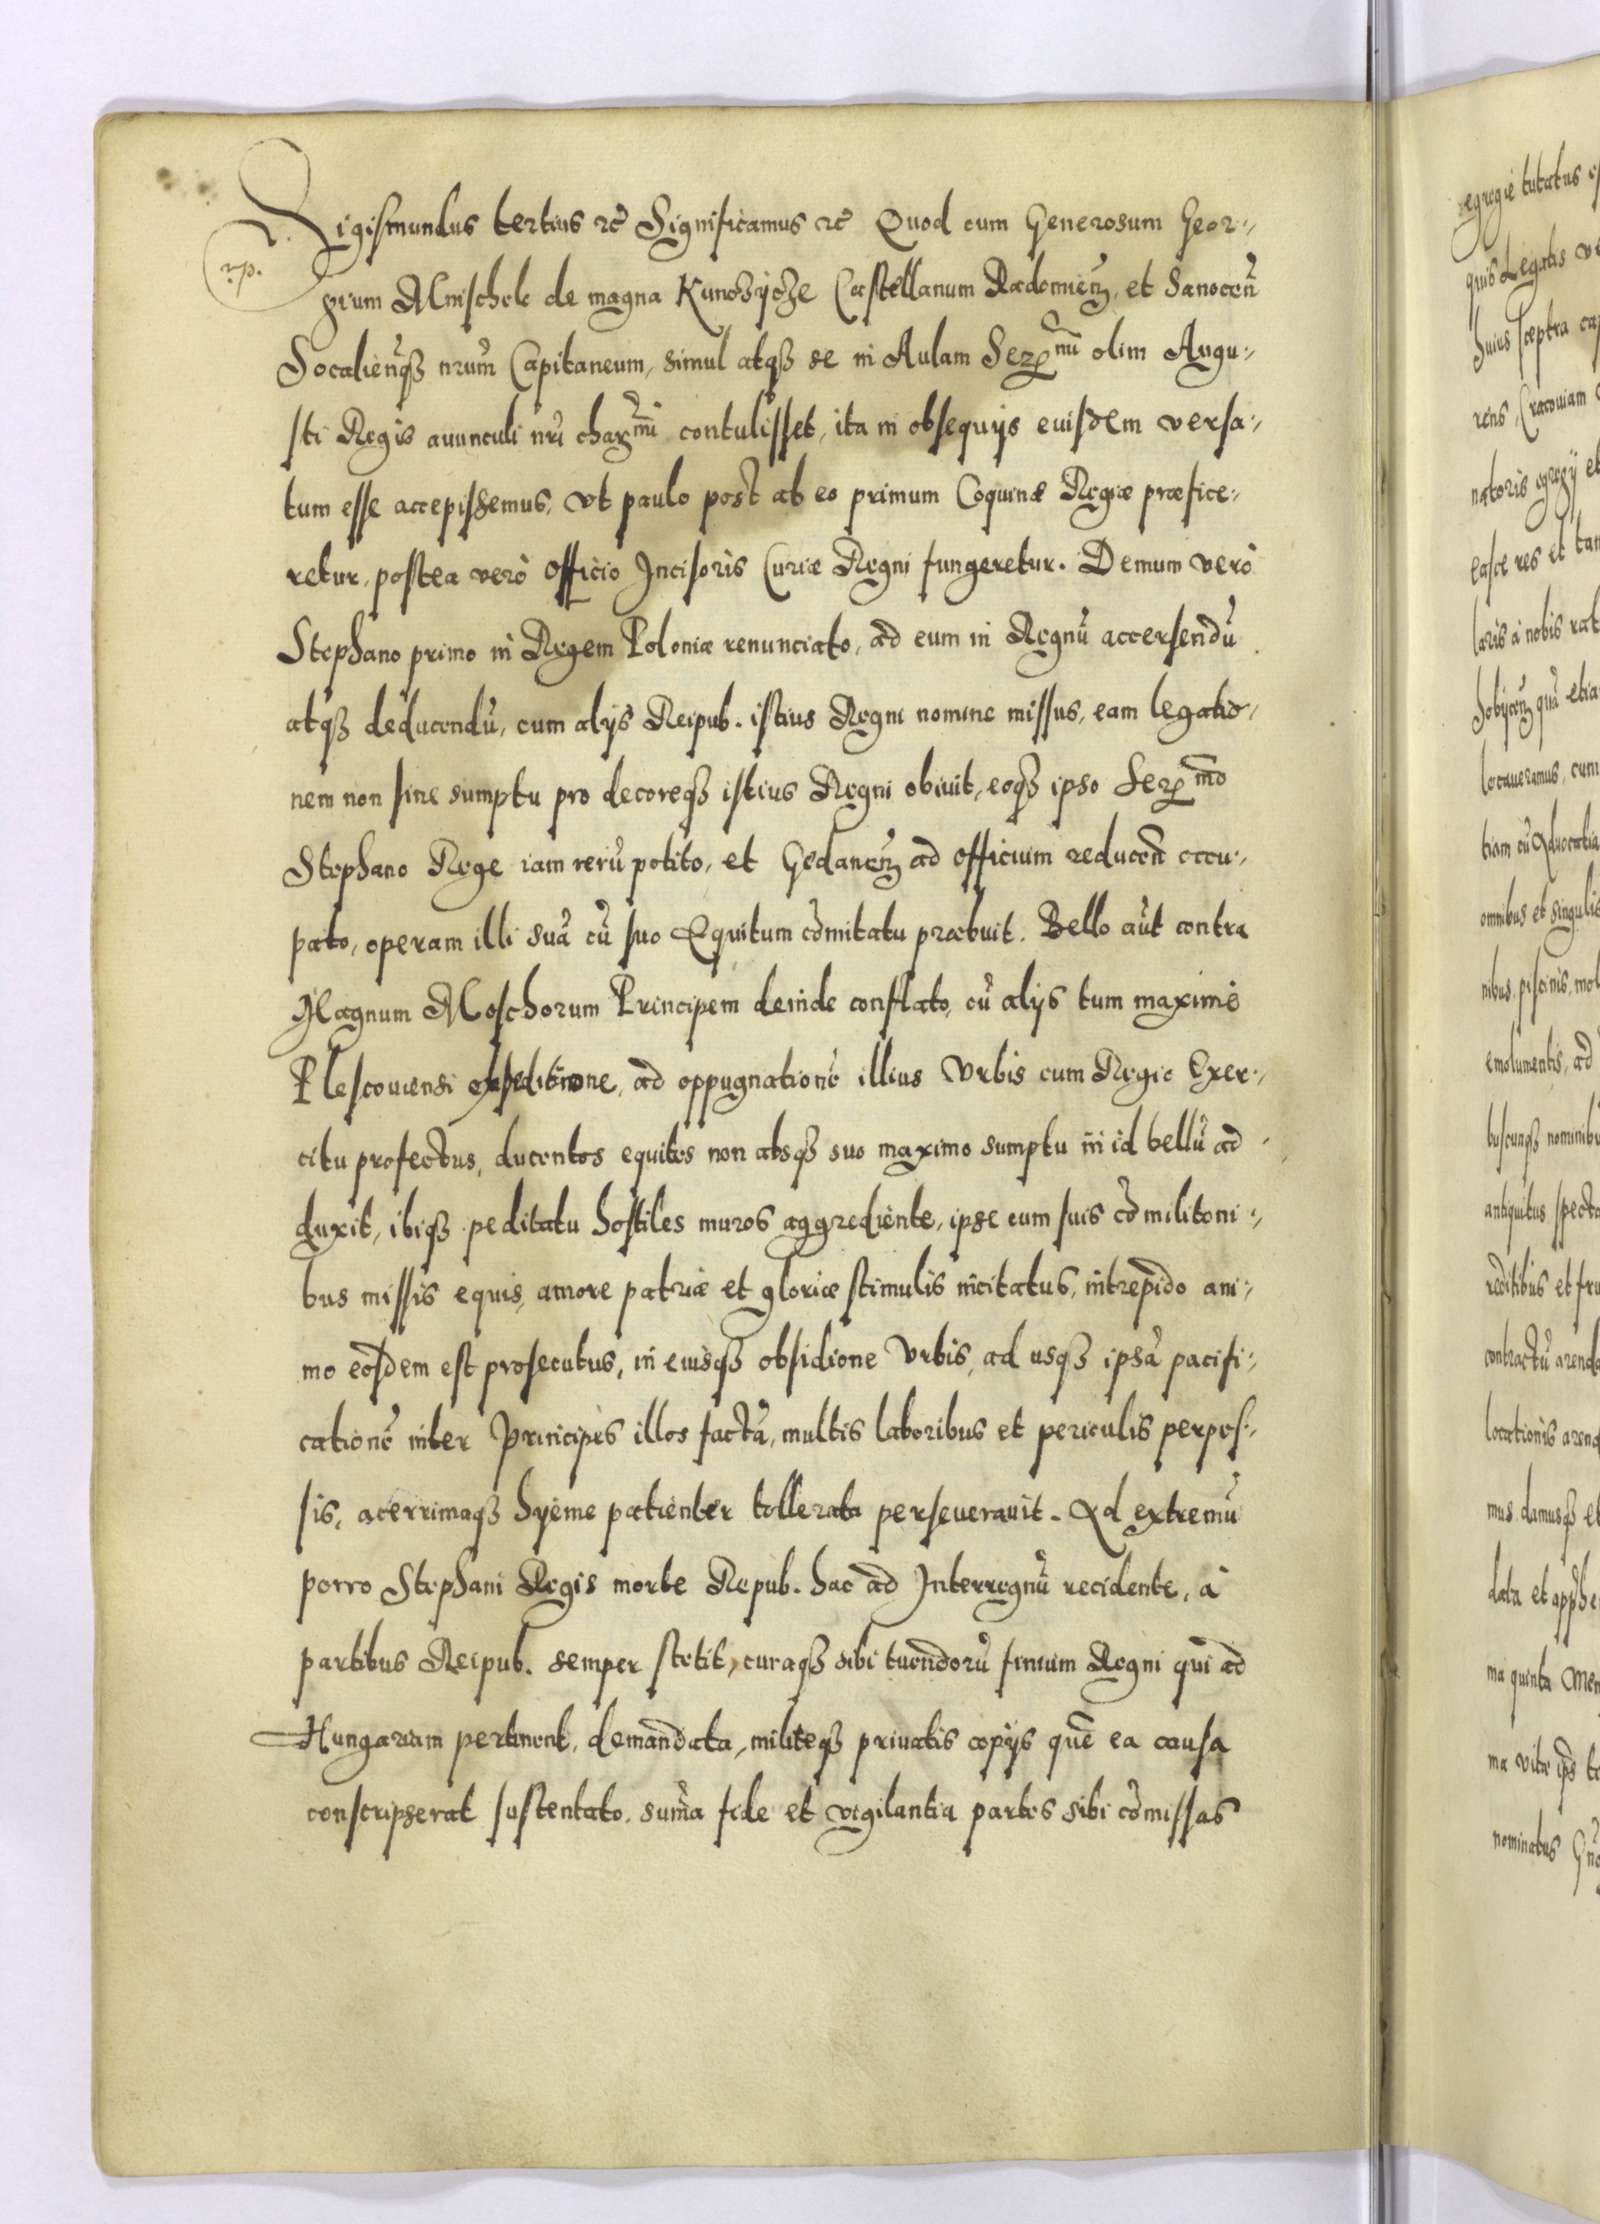 Sigismundus tertius rc̃ Significamus rc̃ Quod cum Generosum Geor-
rp.
gium Mnischek de magna Kunczÿcze Castellanum Radomieñ, et Sanoceñ
Socalieñqȝ nrum̃ Capitaneum, simul atqȝ se in Aulam Sermi olim Augu-
sti Regis auunculi nri charmi contulisset, ita in obsequÿs eiusdem versa-
tum esse accepissemus, vt paulo post ab eo primum Coquinæ Regiæ præfice-
retur, postea verò officio Incisoris Curiæ Regni fungeretur. Demum verò
Stephano primo in Regem Poloniæ renunciato, ad eum in Regnũ accersendũ
atqȝ deducendũ, cum alÿs Reipub. istius Regni nomine missus, eam legatio-
nem non sine sumptu pro decoreqȝ istius Regni obiuit, eoqȝ ipso Sermo
Stephano Rege iam rerũ potito, et Gedaneñ ad officium reduceñ occu-
pato, operam illi suã cũ suo Equitum cõmitatu præbuit. Bello aũt contra
Magnum Moschorum Principem deinde conflato, cũ alÿs tum maximè
Plescouiensi expeditione, ad oppugnationẽ illius Vrbis cum Regio Exer-
citu profectus, ducentos equites non absqȝ suo maximo sumptu in id bellũ ad-
duxit, ibiqȝ peditatu hostiles muros aggrediente, ipse cum suis cõmilitoni-
bus missis equis, amore patriæ et gloriæ stimulis incitatus, intrepido ani-
mo eosdem est prosecutus, in eiusqȝ obsidione Vrbis, ad usqȝ ipsã pacifi-
cationẽ inter Principes illos factã, multis laboribus et periculis perpes-
sis, acerrimaqȝ hÿeme patienter tollerata perseuerauit. Ad extremũ
porro Stephani Regis morte Repub. hac ad Interregnũ recidente, à
partibus Reipub. semper stetit, curaqȝ sibi tuendorũ finium Regni qui ad
Hungariam pertinent, demandata, militeqȝ priuatis copÿs quẽ ea causa
conscripserat sustentato, sum̃a fide et vigilantia partes sibi cõmissas
egregiè tutatus
quis Legatis
huius sceptra
rens, Cracouiam
natoris egregÿ et
easce res et
laris à nobis
locaueramus, cum
omnibus et singulis
nibus, piscinis,
emolumentis, ad
antiquitus
reditibus et
contractũ
locationis
mus damusqȝ et
data et
ma quinta
ma vitæ
nominatus